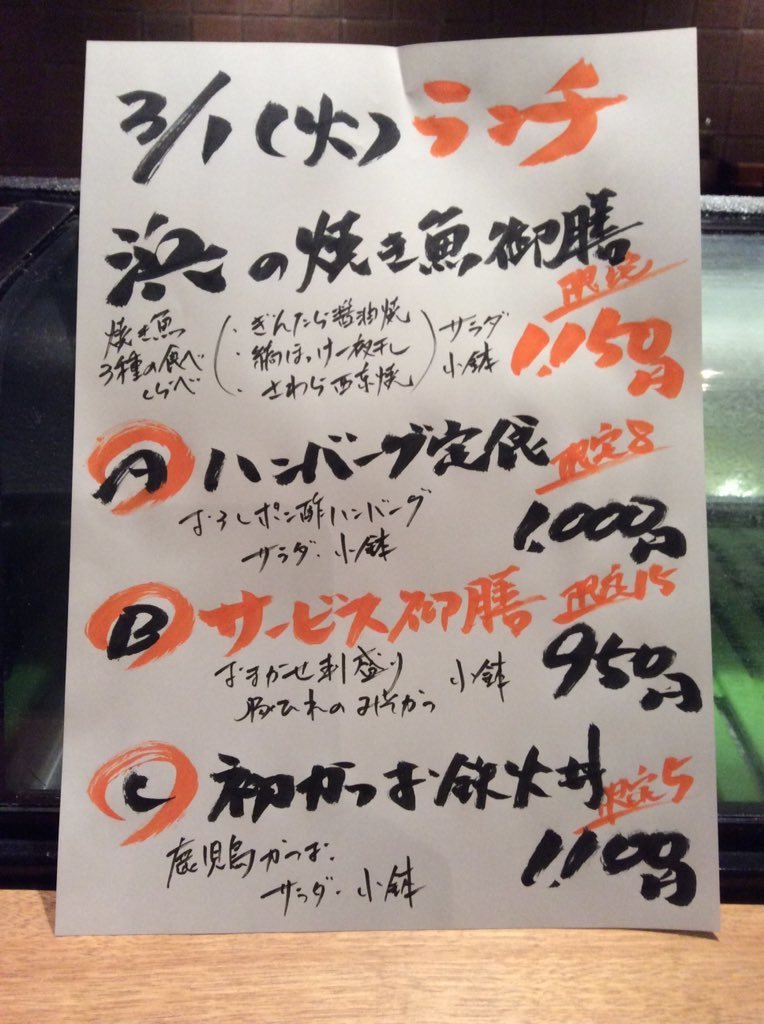 3/1(火)ランチ
浜の焼き魚御膳
限定
焼き魚
3種の食べ
くらべ
・ぎんだら醤油焼
・縞ほっけ一夜干し
・さわら西京焼
サラダ
小鉢
1,150円
A ハンバーグ定食 限定8
おろしポン酢ハンバーグ
サラダ・小鉢
1,000円
B サービス御膳 限定15
おまかせ刺盛り
豚ひれのみそかつ
小鉢
950円
C 初かつお鉄火丼 限定5
鹿児島かつお、
サラダ・小鉢
1,100円